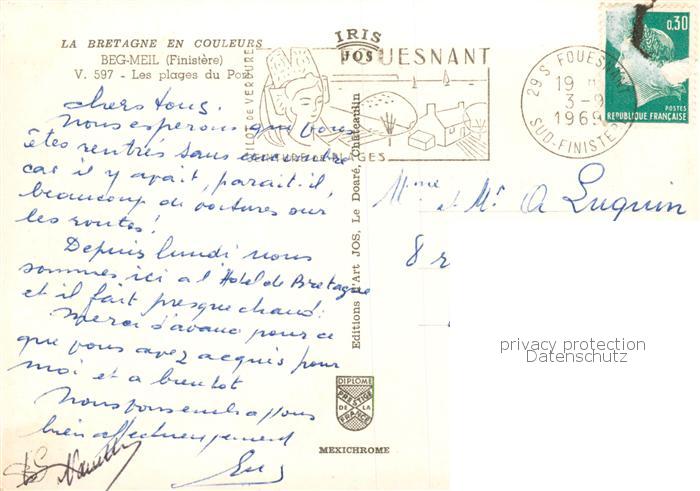 LA BRETAGNE EN COULEURS
BEG-MEIL (Finistère)
V. 597 - Les plages du
IRIS
JOS
UESNANT
29 S FOUESNANT
19
3-9
1969
SUD-FINISTERE
0,30
POSTES
REPUBLIQUE FRANÇAISE
DE VERDURE
PLAGES
Editions d'Art JOS, Le Doaré, Châteaulin
chers tous.
Nous esperons que vous
êtes rentrés sans encombre
car il y avait, parait-il,
beaucoup de voitures sur
les routes!
Depuis lundi nous
sommes ici a l'Hotel de Bretagne
et il fait presque chaud.
Merci d'avance pour ce
que vous avez acquis pour
moi et a bientot
Nous vous embrassons
bien affectueusement
Mme
et Mr A Luquin
8 r
privacy protection
Datenschutz
DIPLOME
PRESTIGE
DE LA
FRANCE
MEXICHROME